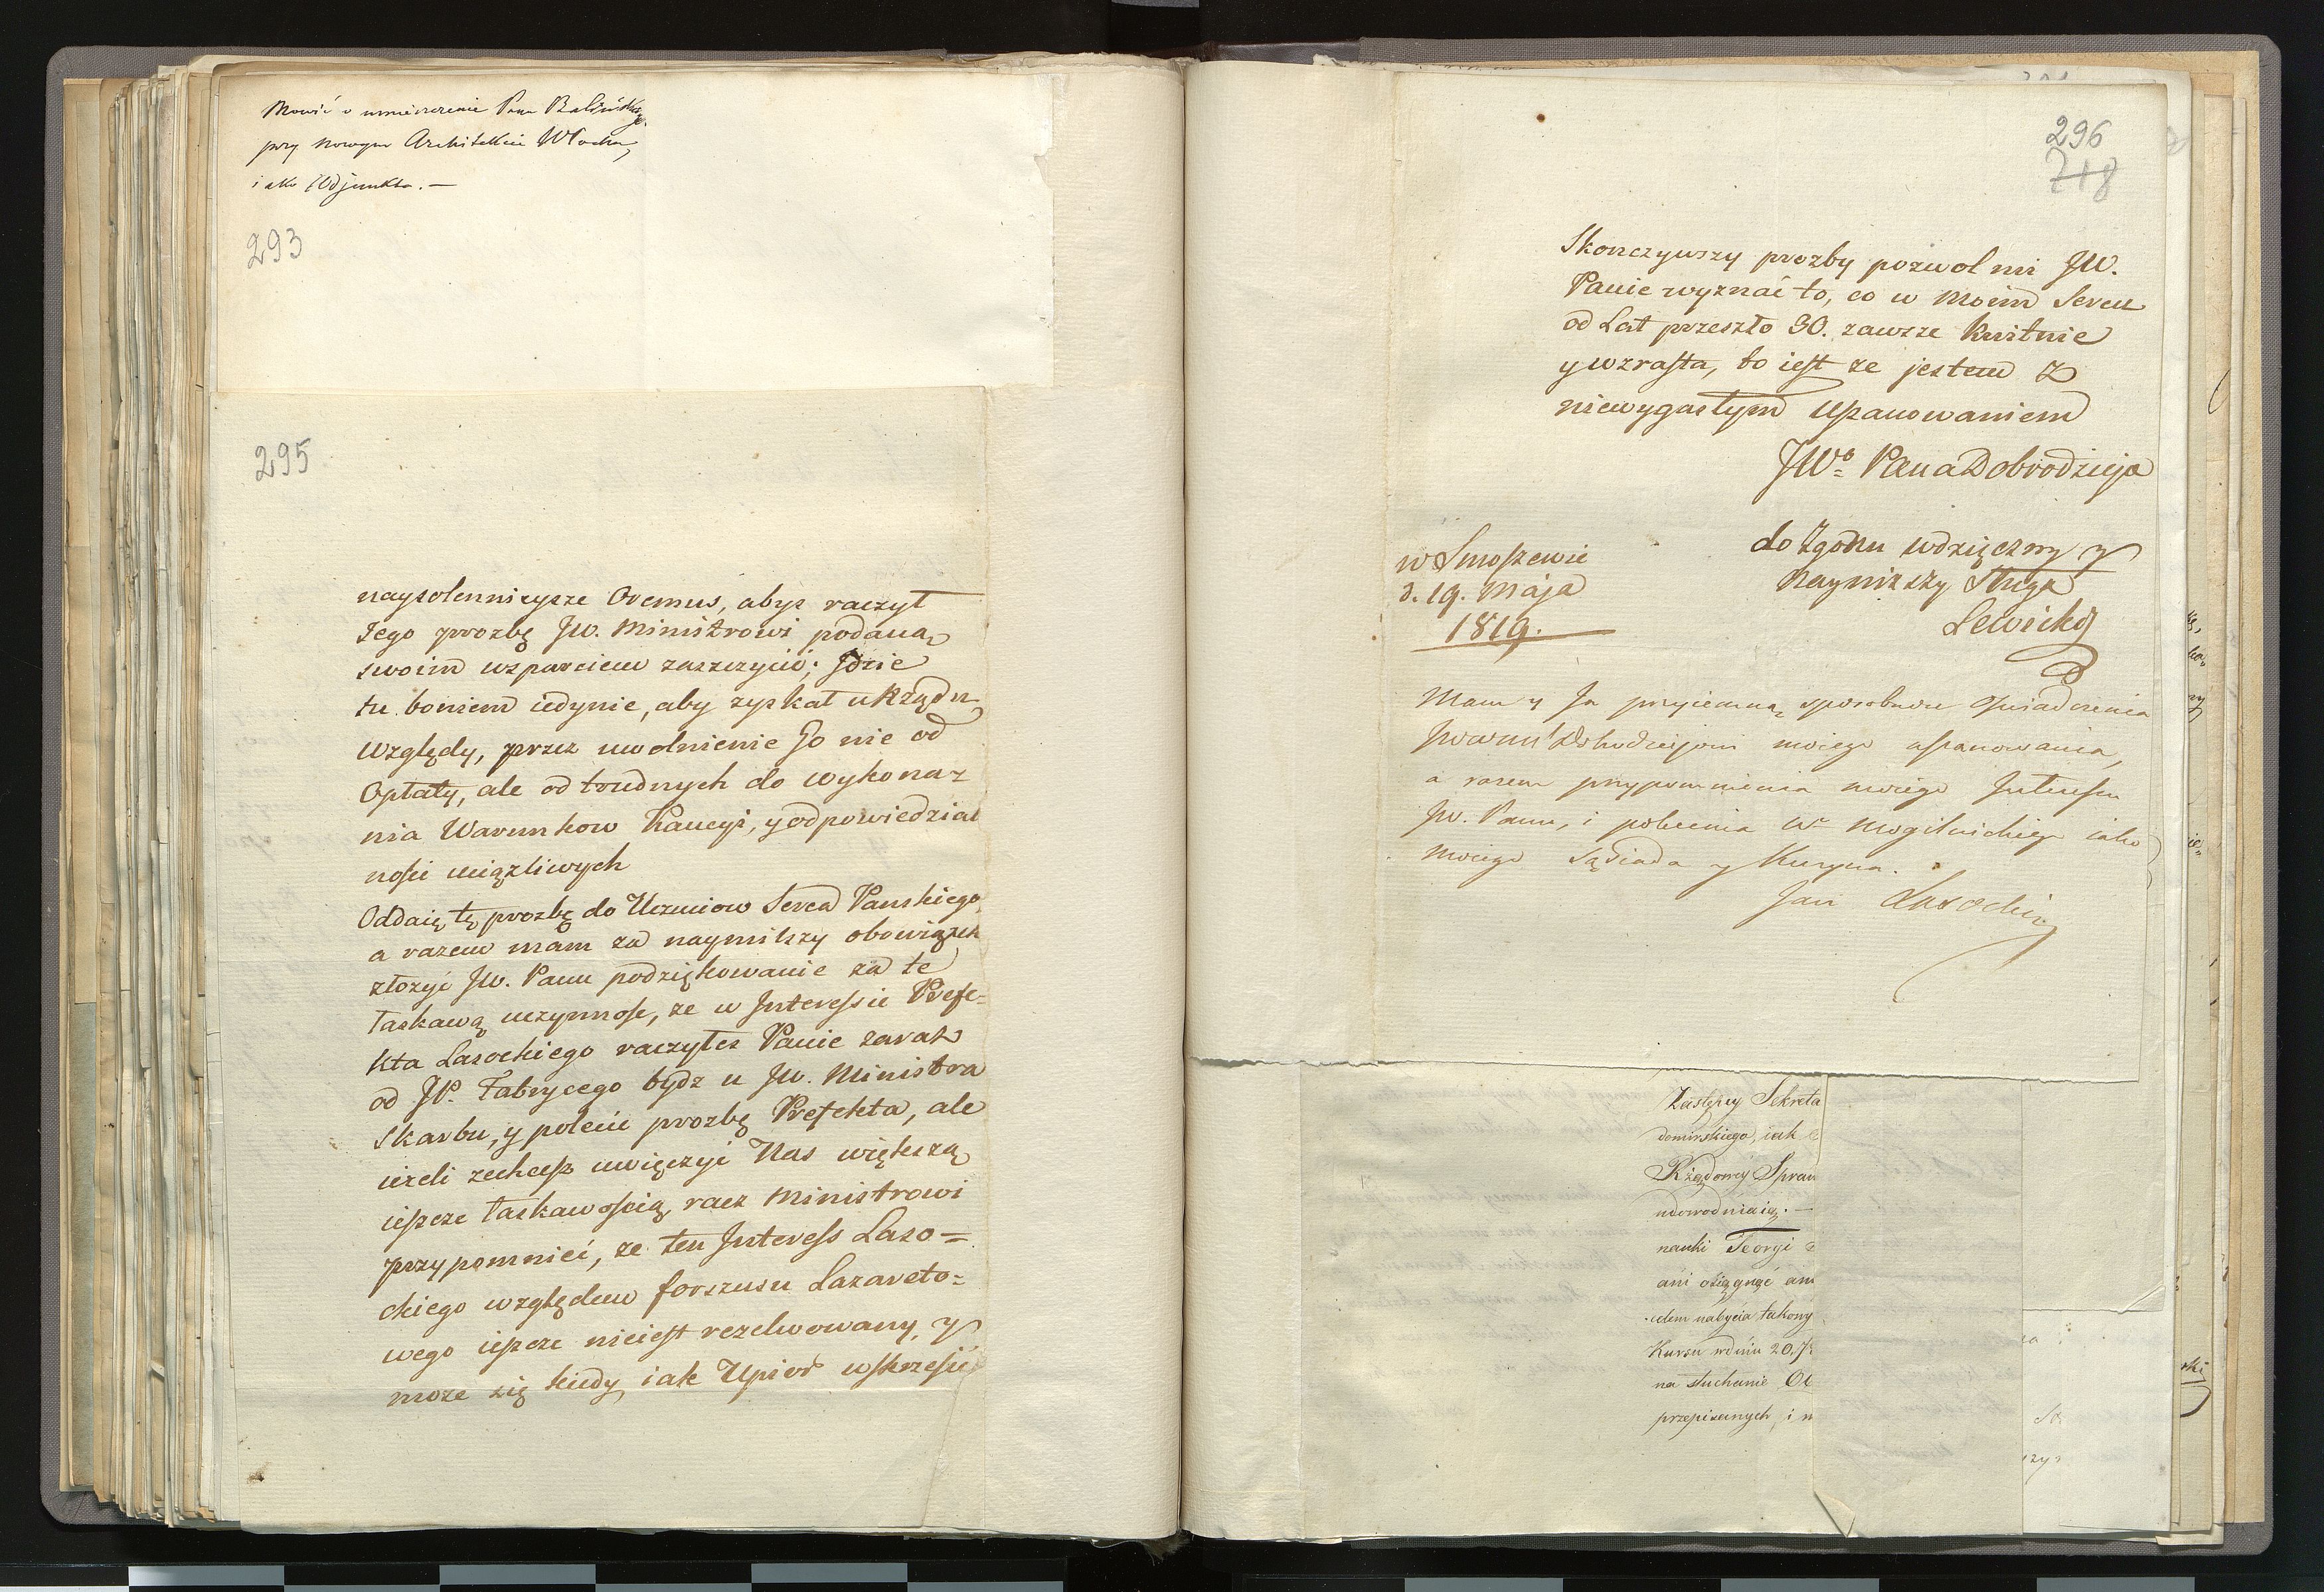 Mowić o umieszczenie Pana Balińskiego
przy nowym Architekcie Włochu,
iako Adjunkta. —
293
295
naysolennieysze Oremus, abyś raczył
Jego prozbę JW. Ministrowi podaną
swoim wsparciem zaszczycić; Idzie
tu bowiem iedynie, aby zyskał u Rządu
Względy, przez uwolnienie Go nie od
Opłaty, ale od trudnych do wykona=
nia Warunkow Kaucyi, y odpowiedzial
ności uciążliwych
Oddaię tę prozbę do Uczuciow Serca Pańskiego,
a razem mam za naymilszy obowiązek
złożyć JW. Panu podziękowanie za te
łaskawą uczynność, że w Interessie Prefe=
kta Lasockiego raczyłeś Panie zaraz
od JP. Fabrycego bydz u JW. Ministra
Skarbu, y polecić prozbę Prefekta, ale
ieżeli zechcesz uwięczyć Nas większą
ieszcze łaskawością, racz Ministrowi
przypomnieć, że ten Interess Laso=
ckiego względem forszusu Lazareto=
wego ieszcze nieiest rezolwowany, y
może się kiedy iak Upior wskrzesić
296
718
Skończywszy prozby pozwol mi JW.
Panie wyznać to, co w Moim Sercu
od Lat przeszło 30. zawsze kwitnie
y wzrasta, to iest że jestem z
niewygasłym uszanowaniem
JWo Pana Dobrodzieja
do Zgonu wdzięczny y
Nayniższy Sługa
Lewicky
w Smoszewie
d. 19. Maja
1819.
Mam y Ja przyiemną sposobność oświadczenia
JWWmu Dobrodziejowi moiego uszanowania,
a razem przypomnienia moiego Interesu
JW. Panu, i polecenia W. Mogilnickiego iako
Moiego Sąsiada y Kuzyna.
Jan Lasocki
Zastępcy Sekreta
domirskiego, iak
Rządowey Spraw
udowodniaią. —
nauki Teoryi
ani osiągnąć an
dem nabycia takowy
Kursu w dniu 20.
na słuchanie
przepisanych, i